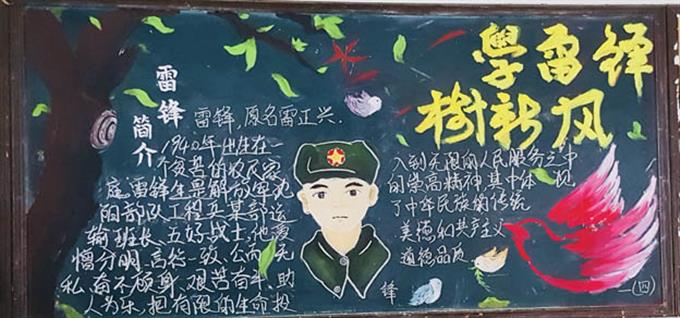 學雷锋
樹新风
雷锋简介
雷锋,原名雷正兴.
1940年出生在一
个贫苦的农民家
庭,雷锋生是解放军沈
阳部队工程兵某部运
输班长、五好战士,他爱
憎分明、一致、公而无
私、奋不顾身、艰苦奋斗、助
人为乐,把有限的生命投
入到无限的人民服务之中
的崇高精神,其中体现
了中华民族的传统
美德和共产主义
道德品质
锋
(四)